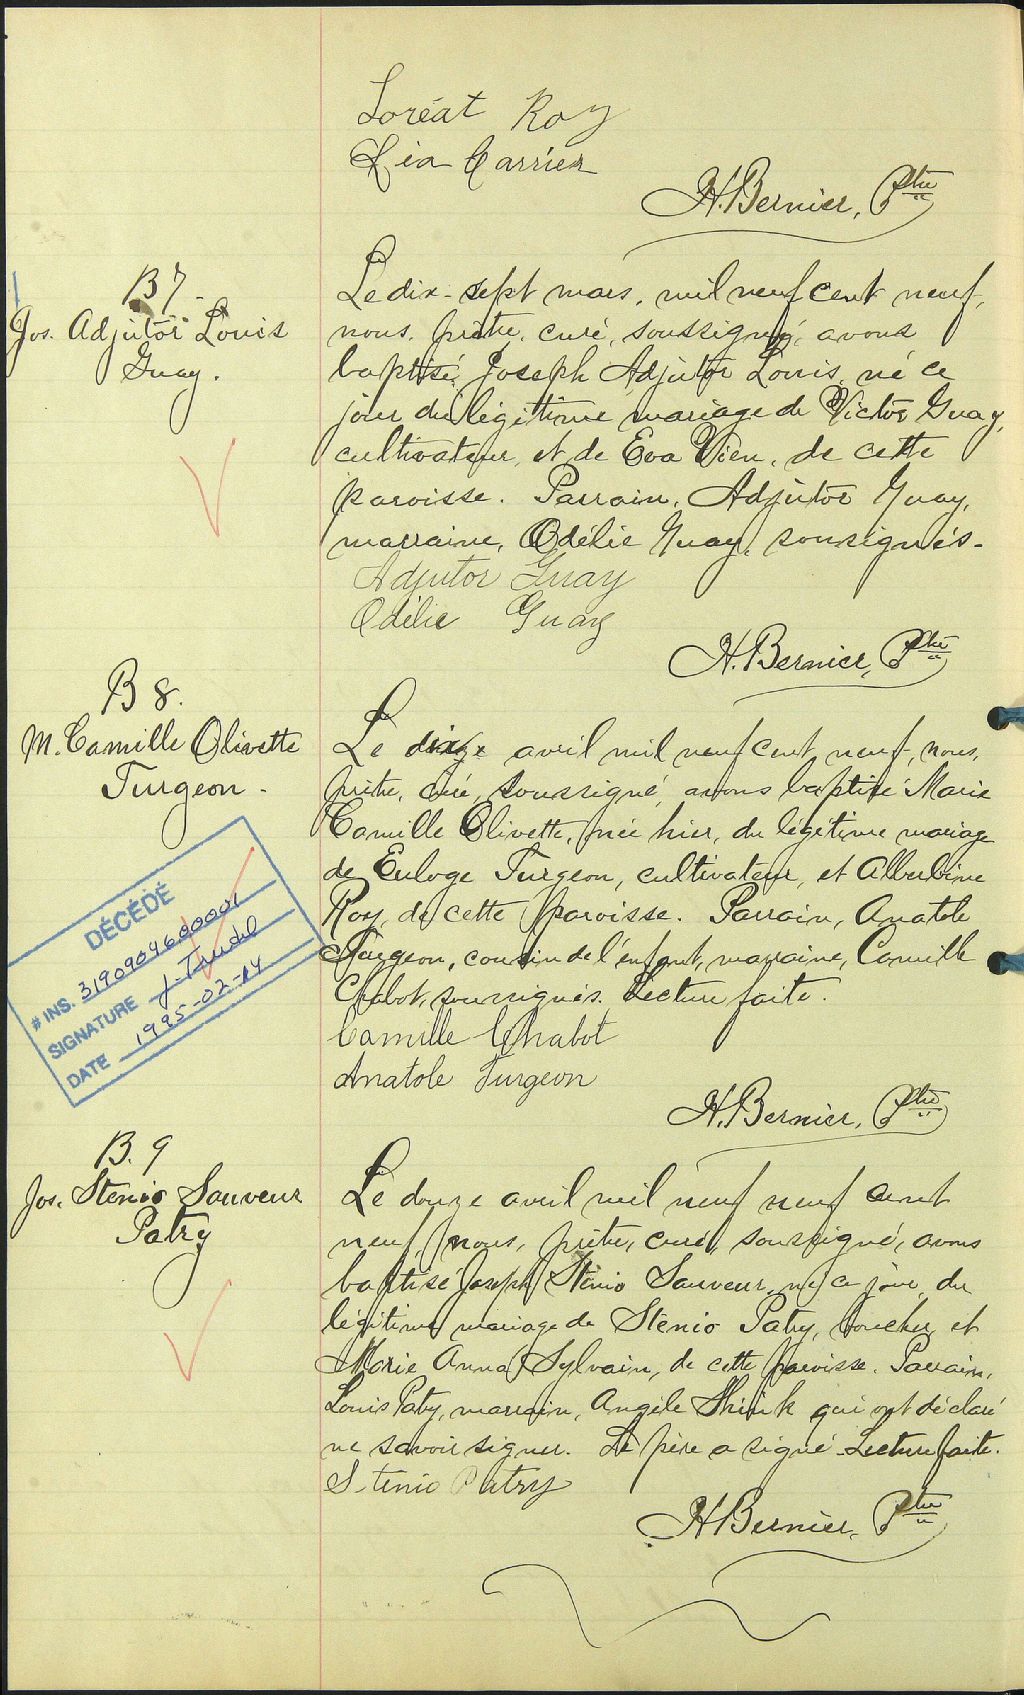 Loréat Roy
Léa Carrier
H. Bernier, Ptre
B 7.
Jos. Adjutor Louis
Guay.
Le dix-sept mars, mil neuf cent neuf,
nous, prêtre, curé, soussigné, avons
baptisé, Joseph Adjutor Louis, né ce
jour du légitime mariage de Victor Guay,
cultivateur, et de Eva Vien, de cette
paroisse. Parrain, Adjutor Guay,
marraine, Odélie Guay, soussignés.
Adjutor Guay
Odélie Guay
H. Bernier, Ptre
B 8.
M. Camille Olivette
Turgeon.
Le avril mil neuf cent neuf, nous,
prêtre, curé, soussigné, avons baptisé Marie
Camille Olivette, née hier, du légitime mariage
de Euloge Turgeon, cultivateur, et Albertine
Roy, de cette paroisse. Parrain, Anatole
Turgeon, cousin de l'enfant, marraine, Camille
Chabot, soussignés. Lecture faite.
Camille Chabot
Anatole Turgeon
H. Bernier, Ptre
DÉCÉDÉ
# INS. 3190909600001
SIGNATURE J. Trudel
DATE 1995-02-14
B. 9
Jos. Sténio Sauveur
Patry
Le douze avril mil neuf neuf cent
neuf, nous, prêtre, curé, soussigné, avons
baptisé Joseph Sténio Sauveur, né ce jour, du
légitime mariage de Sténio Patry, boucher, et
Marie Anna Sylvain, de cette paroisse. Parrain,
Louis Patry, marraine, Angèle qui ont déclaré
ne savoir signer. Le père a signé. Lecture faite.
Stenio Patry
H. Bernier, Ptre